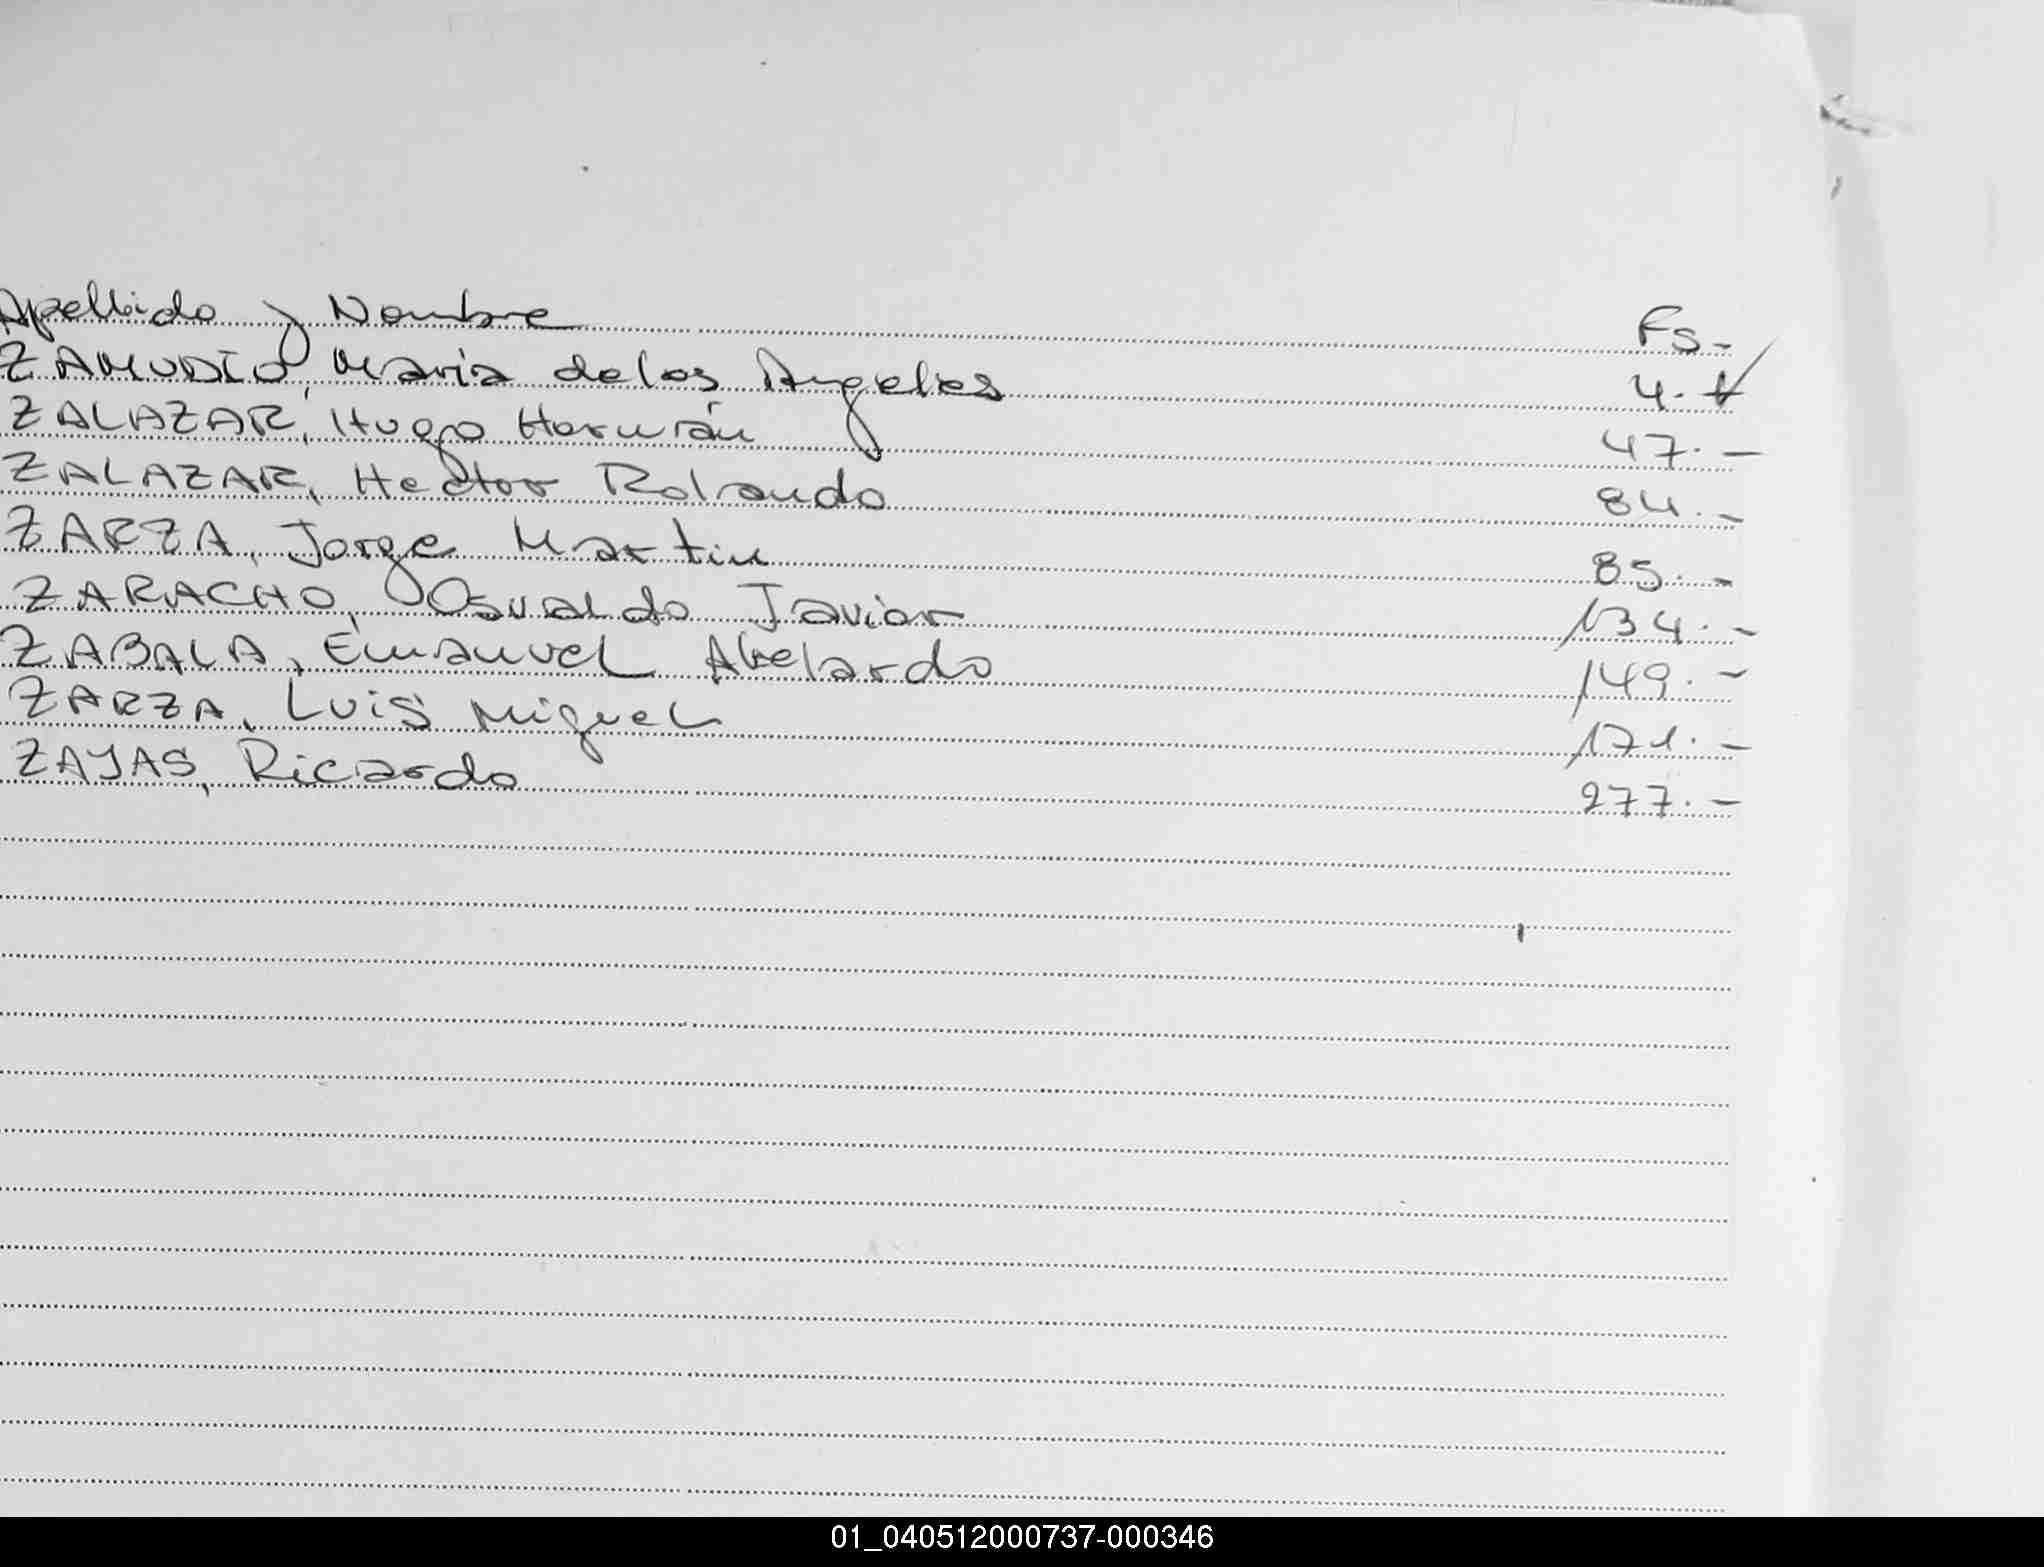 Apellido y Nombre Fs.-
ZAMUDIO, Maria de los Angeles 4.-
ZALAZAR, Hugo Hernán 47.-
ZALAZAR, Hector Rolando 84.-
ZARZA, Jorge Martin 85.-
ZARACHO, Osvaldo Javier 134.-
ZABALA, Emanuel Abelardo 149.-
ZARZA, Luis Miguel 171.-
ZAYAS, Ricardo 277.-
01_040512000737-000346